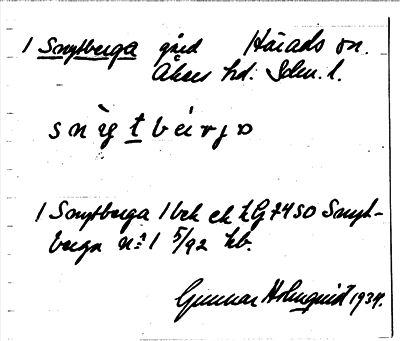 1 Snytberga gård Härads sn.
Åkers hd. Sdm. l.
s n y t b e r j a
1 Snytberga 1 bch ek hG 7450 Snyt-
berga nº 1 5/92 hb.
Gunnar Holmquist 1934.